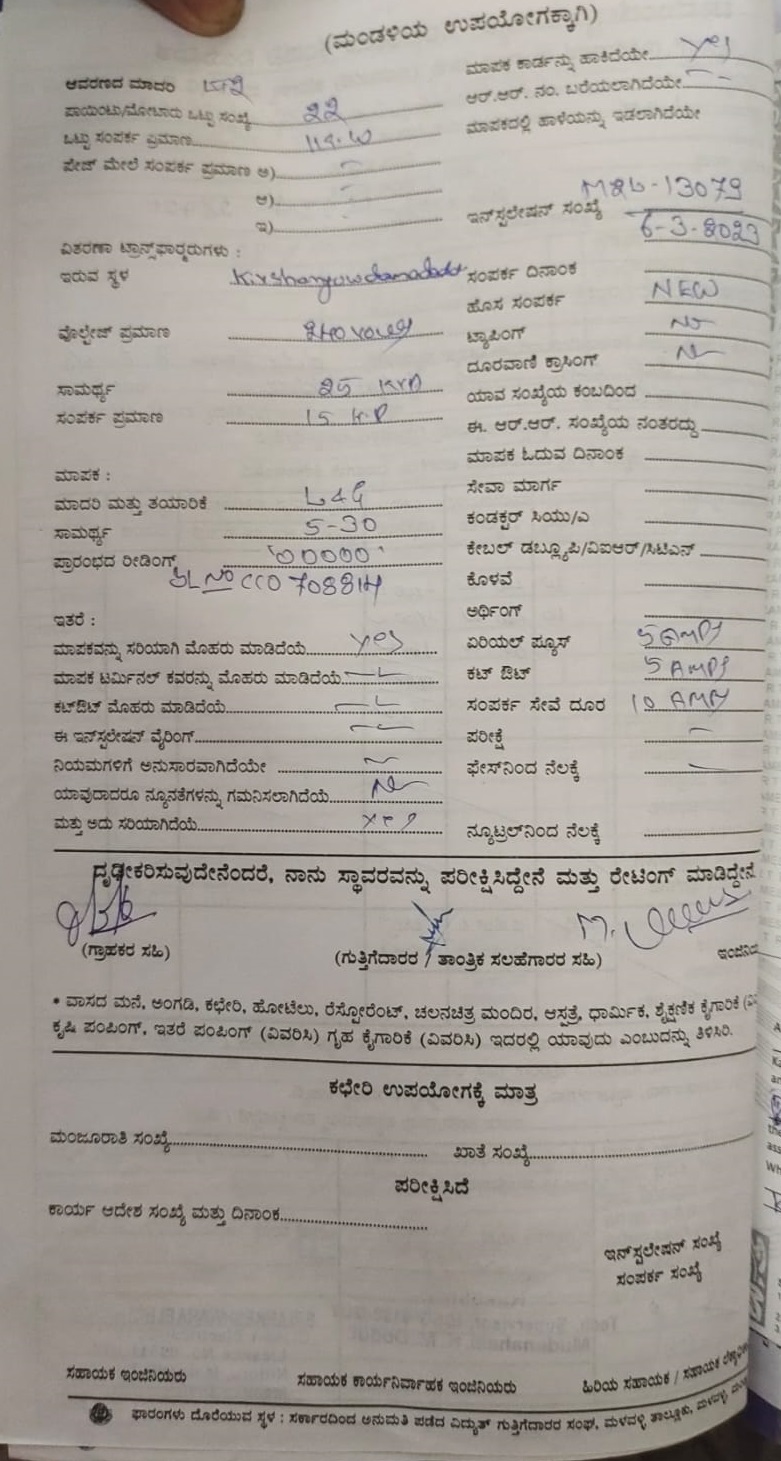 (ಮಂಡಳಿಯ ಉಪಯೋಗಕ್ಕಾಗಿ)
ಆವರಣದ ಮಾದರಿ
ಪಾಯಿಂಟು/ಮೋಟಾರು ಒಟ್ಟು ಸಂಖ್ಯೆ 22
ಒಟ್ಟು ಸಂಪರ್ಕ ಪ್ರಮಾಣ
ಪೇಜ್ ಮೇಲೆ ಸಂಪರ್ಕ ಪ್ರಮಾಣ ಅ)
ಆ)
ಇ)
ವಿತರಣಾ ಟ್ರಾನ್ಸ್‌ಫಾರ್ಮರುಗಳು :
ಇರುವ ಸ್ಥಳ
ವೊಲ್ಟೇಜ್ ಪ್ರಮಾಣ
ಸಾಮರ್ಥ್ಯ 25 KVA
ಸಂಪರ್ಕ ಪ್ರಮಾಣ 15 H.P
ಮಾಪಕ :
ಮಾದರಿ ಮತ್ತು ತಯಾರಿಕೆ L&G
ಸಾಮರ್ಥ್ಯ 5-30
ಪ್ರಾರಂಭದ ರೀಡಿಂಗ್ '00000'
SL No CCO 708814
ಇತರೆ :
ಮಾಪಕವನ್ನು ಸರಿಯಾಗಿ ಮೊಹರು ಮಾಡಿದೆಯೆ yes
ಮಾಪಕ ಟರ್ಮಿನಲ್ ಕವರನ್ನು ಮೊಹರು ಮಾಡಿದೆಯೆ
ಕಟ್‌ಔಟ್ ಮೊಹರು ಮಾಡಿದೆಯೆ
ಈ ಇನ್‌ಸ್ಟಲೇಷನ್ ವೈರಿಂಗ್
ನಿಯಮಗಳಿಗೆ ಅನುಸಾರವಾಗಿದೆಯೇ
ಯಾವುದಾದರೂ ನ್ಯೂನತೆಗಳನ್ನು ಗಮನಿಸಲಾಗಿದೆಯೆ No
ಮತ್ತು ಅದು ಸರಿಯಾಗಿದೆಯೆ yes
ಮಾಪಕ ಕಾರ್ಡನ್ನು ಹಾಕಿದೆಯೇ yes
ಆರ್.ಆರ್. ನಂ. ಬರೆಯಲಾಗಿದೆಯೇ
ಮಾಪಕದಲ್ಲಿ ಹಾಳೆಯನ್ನು ಇಡಲಾಗಿದೆಯೇ
ಇನ್‌ಸ್ಟಲೇಷನ್ ಸಂಖ್ಯೆ M2L-13079
6-3-2023
ಸಂಪರ್ಕ ದಿನಾಂಕ
ಹೊಸ ಸಂಪರ್ಕ NEW
ಟ್ಯಾಪಿಂಗ್ No
ದೂರವಾಣಿ ಕ್ರಾಸಿಂಗ್ No
ಯಾವ ಸಂಖ್ಯೆಯ ಕಂಬದಿಂದ
ಈ. ಆರ್.ಆರ್. ಸಂಖ್ಯೆಯ ನಂತರದ್ದು
ಮಾಪಕ ಓದುವ ದಿನಾಂಕ
ಸೇವಾ ಮಾರ್ಗ
ಕಂಡಕ್ಟರ್ ಸಿಯು/ಎ
ಕೇಬಲ್ ಡಬ್ಲ್ಯೂಪಿ/ವಿಐಆರ್/ಸಿಟಿಎಸ್
ಕೊಳವೆ
ಅರ್ಥಿಂಗ್
ಏರಿಯಲ್ ಫ್ಯೂಸ್ 5 Amps
ಕಟ್ ಔಟ್ 5 AMPS
ಸಂಪರ್ಕ ಸೇವೆ ದೂರ 10 AMPS
ಪರೀಕ್ಷೆ
ಫೇಸ್‌ನಿಂದ ನೆಲಕ್ಕೆ
ನ್ಯೂಟ್ರಲ್‌ನಿಂದ ನೆಲಕ್ಕೆ
ದೃಢೀಕರಿಸುವುದೇನೆಂದರೆ, ನಾನು ಸ್ಥಾವರವನ್ನು ಪರೀಕ್ಷಿಸಿದ್ದೇನೆ ಮತ್ತು ರೇಟಿಂಗ್ ಮಾಡಿದ್ದೇನೆ
(ಗ್ರಾಹಕರ ಸಹಿ) (ಗುತ್ತಿಗೆದಾರರ / ತಾಂತ್ರಿಕ ಸಲಹೆಗಾರರ ಸಹಿ)
• ವಾಸದ ಮನೆ, ಅಂಗಡಿ, ಕಛೇರಿ, ಹೋಟೆಲು, ರೆಸ್ಟೋರೆಂಟ್, ಚಲನಚಿತ್ರ ಮಂದಿರ, ಆಸ್ಪತ್ರೆ, ಧಾರ್ಮಿಕ, ಶೈಕ್ಷಣಿಕ ಕೈಗಾರಿಕೆ
ಕೃಷಿ ಪಂಪಿಂಗ್, ಇತರೆ ಪಂಪಿಂಗ್ (ವಿವರಿಸಿ) ಗೃಹ ಕೈಗಾರಿಕೆ (ವಿವರಿಸಿ) ಇದರಲ್ಲಿ ಯಾವುದು ಎಂಬುದನ್ನು ತಿಳಿಸಿರಿ.
ಕಛೇರಿ ಉಪಯೋಗಕ್ಕೆ ಮಾತ್ರ
ಮಂಜೂರಾತಿ ಸಂಖ್ಯೆ ಖಾತೆ ಸಂಖ್ಯೆ
ಪರೀಕ್ಷಿಸಿದೆ
ಕಾರ್ಯ ಆದೇಶ ಸಂಖ್ಯೆ ಮತ್ತು ದಿನಾಂಕ
ಇನ್‌ಸ್ಟಲೇಷನ್ ಸಂಖ್ಯೆ
ಸಂಪರ್ಕ ಸಂಖ್ಯೆ
ಸಹಾಯಕ ಇಂಜಿನಿಯರು ಸಹಾಯಕ ಕಾರ್ಯನಿರ್ವಾಹಕ ಇಂಜಿನಿಯರು ಹಿರಿಯ ಸಹಾಯಕ / ಸಹಾಯಕ
ಫಾರಂಗಳು ದೊರೆಯುವ ಸ್ಥಳ : ಸರ್ಕಾರದಿಂದ ಅನುಮತಿ ಪಡೆದ ವಿದ್ಯುತ್ ಗುತ್ತಿಗೆದಾರರ ಸಂಘ, ಮಳವಳ್ಳಿ ತಾಲ್ಲೂಕು, ಮಳವಳ್ಳಿ,